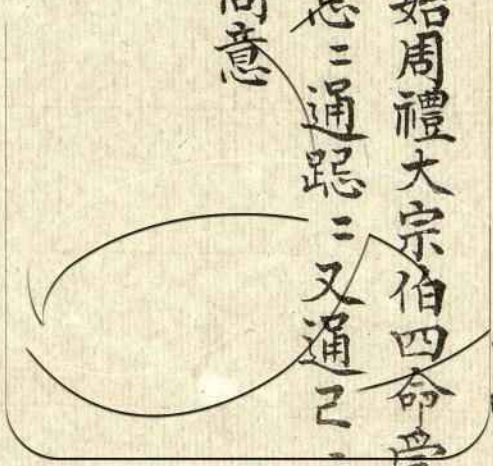 始周禮大宗伯四命受
忌〻通跽〻又通己
同意